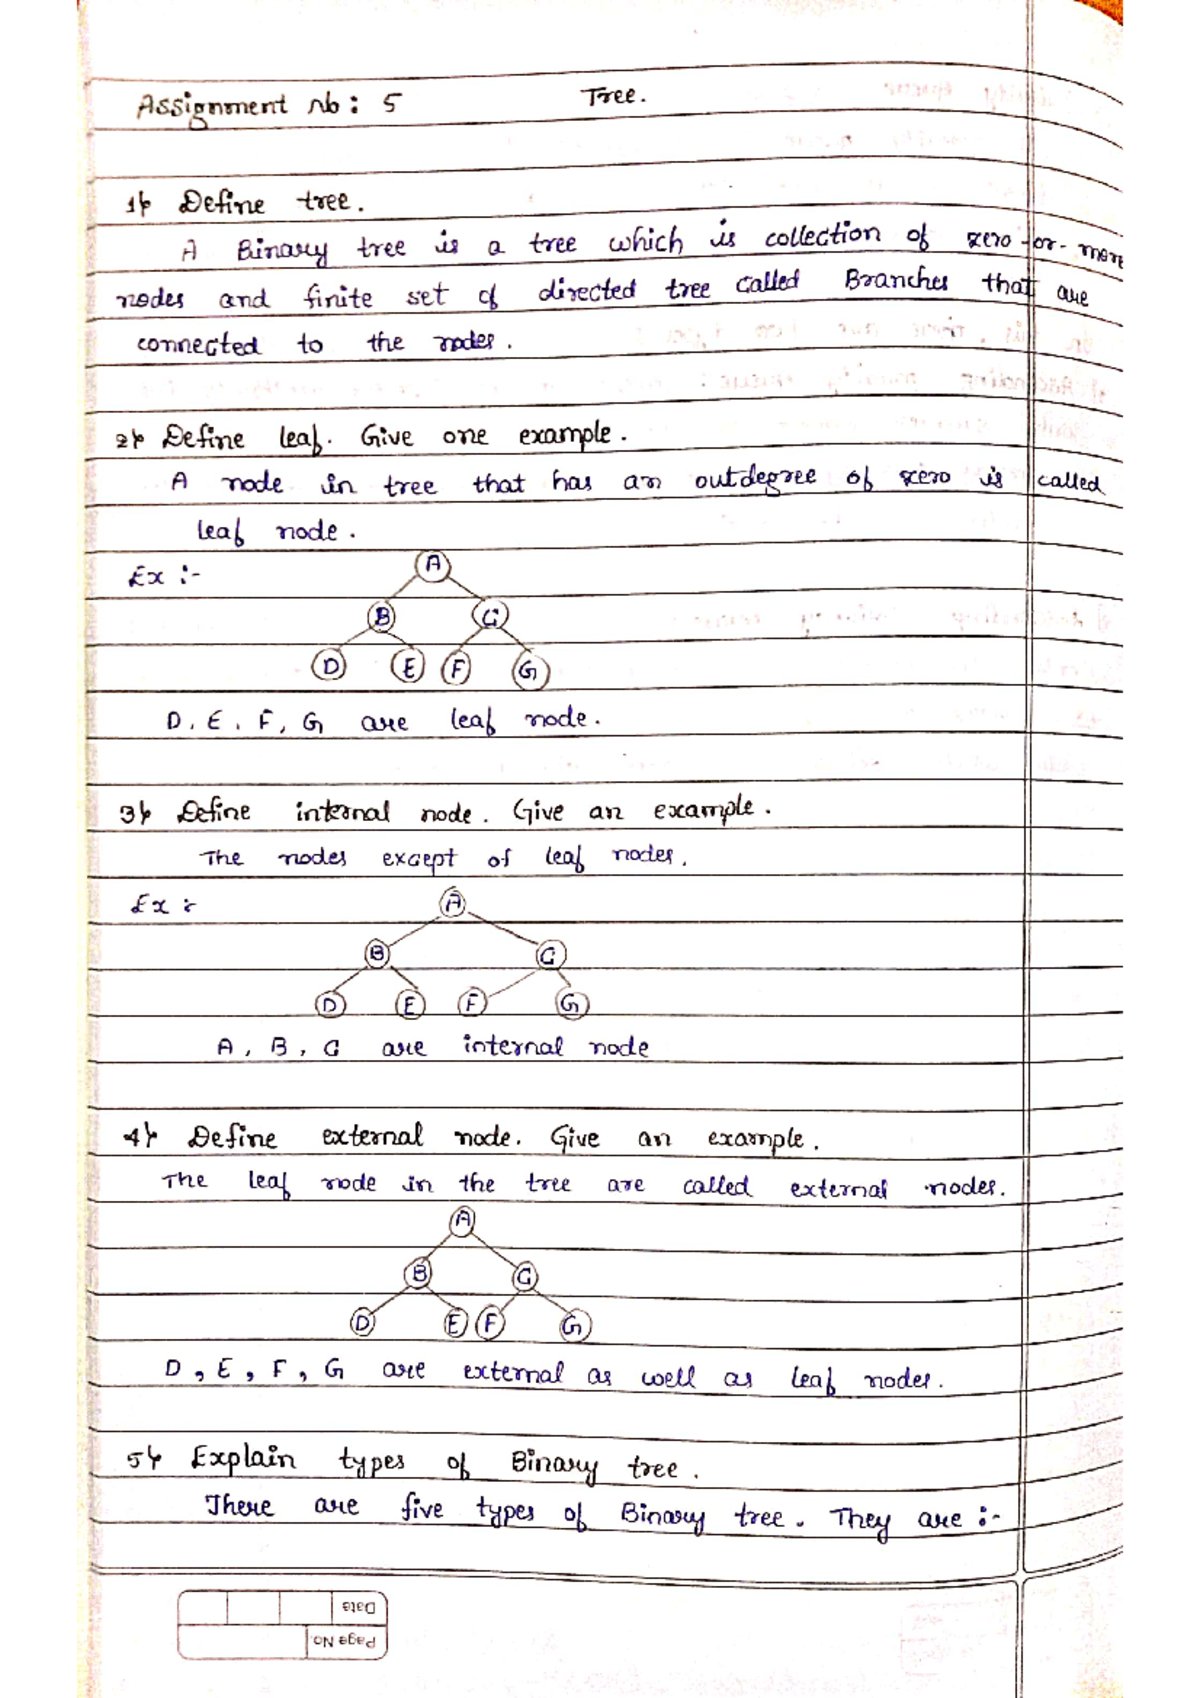 Assignment No : 5 Tree.
1) Define tree.
A Binary tree is a tree which is collection of zero-or-more
nodes and finite set of directed tree called Branches that are
connected to the nodes.
2) Define leaf. Give one example.
A node in tree that has an outdegree of zero is called
leaf node.
Ex :-
A
B C
D E F G
D, E, F, G are leaf node.
3) Define internal node. Give an example.
The nodes except of leaf nodes.
Ex :
A
B C
D E F G
A, B, C are internal node
4) Define external node. Give an example.
The leaf node in the tree are called external nodes.
A
B C
D E F G
D, E, F, G are external as well as leaf nodes.
5) Explain types of Binary tree.
There are five types of Binary tree. They are :-
Date
Page No.